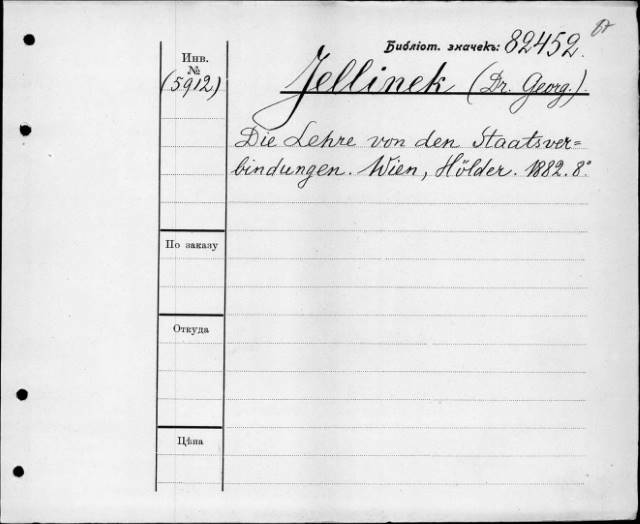 Библіот. значекъ: 82452.
Инв.
№
(5912)
Jellinek (Dr. Georg.)
Die Lehre von den Staatsver=
bindungen. Wien, Hölder. 1882. 8°
По заказу
Откуда
Цѣна